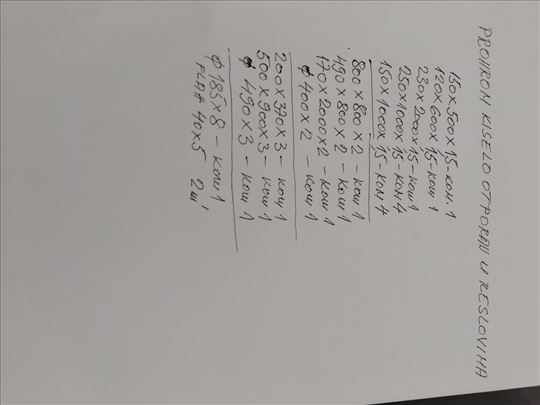 PROHROM KISELO OTPORAN U RESLOVIMA
150x500x15-KOM. 1
120x600x15-KOM 1
230x2000x15-KOM 1
250x1000x15-KOM 4
150x1000x15-KOM 4
800x800x2-KOM 1
490x800x2-KOM 1
170x2000x2-KOM 1
ϕ400x2-KOM 1
200x370x3-KOM 1
500x900x3-KOM 1
ϕ490x3-KOM 1
ϕ185x8-KOM 1
FLAH 40x5 2m'